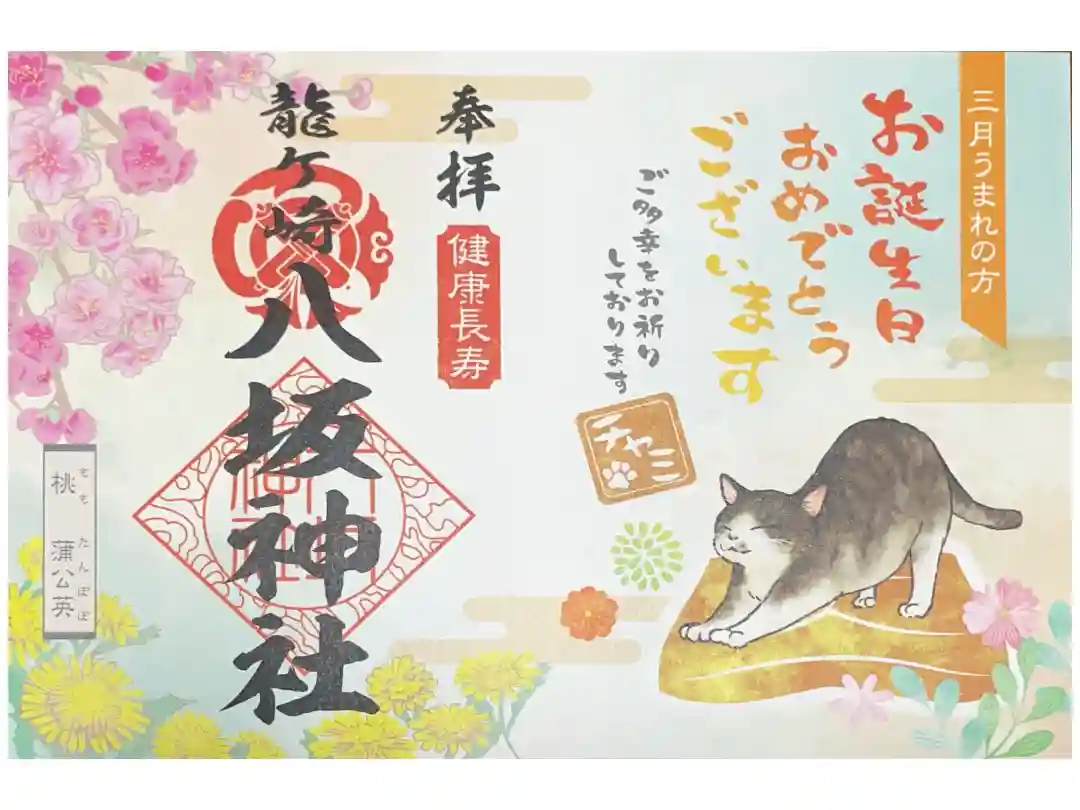 三月うまれの方
お誕生日
おめでとう
ございます
ご多幸をお祈り
しております
チャミ
奉拝
健康長寿
龍ケ崎八坂神社
桃 蒲公英
もも たんぽぽ